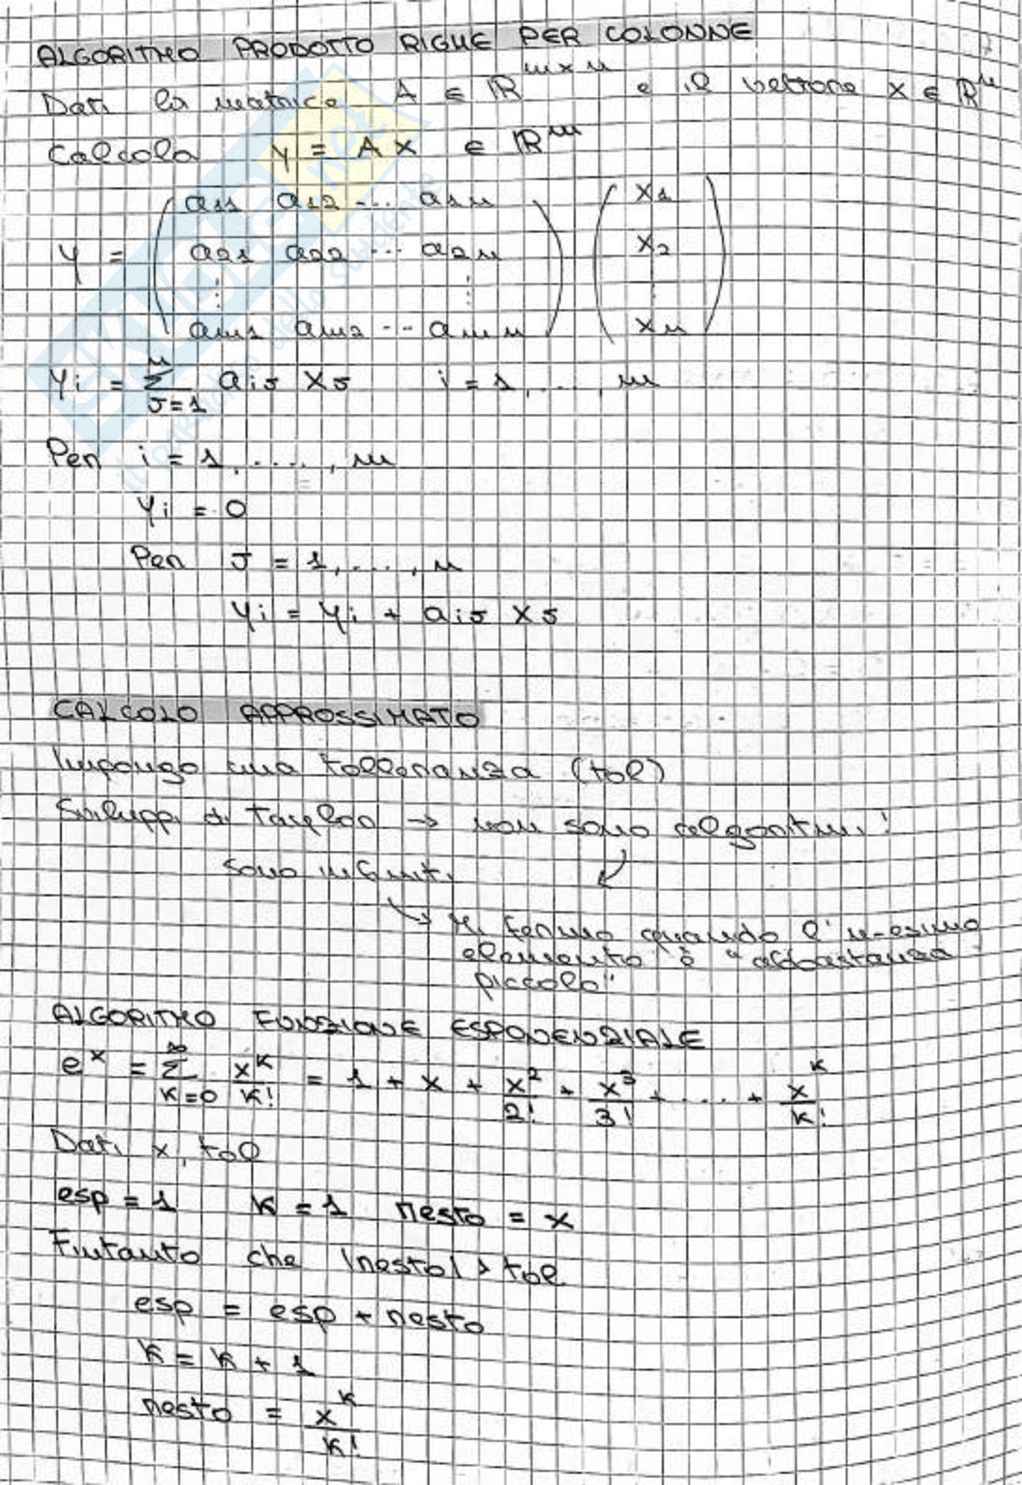 ALGORITMO PRODOTTO RIGHE PER COLONNE
Dati la matrice A ∈ ℝ^{m×n} e il vettore x ∈ ℝ^n
Calcola y = Ax ∈ ℝ^m
y = ( a11 a12 ... a1n ) ( x1 )
( a21 a22 ... a2n ) ( x2 )
( ⋮ ⋮ ) ( ⋮ )
( am1 am2 ... amn ) ( xn )
yi = Σ_{J=1}^{n} aiJ xJ i = 1, ..., m
Per i = 1, ...., m
yi = 0
Per J = 1, ..., n
yi = yi + aiJ xJ
CALCOLO APPROSSIMATO
Impongo una tolleranza (tol)
Sviluppi di Taylor → non sono algoritmi!
sono infiniti ↙
↳ mi fermo quando l'n-esimo
elemento è "abbastanza
piccolo"
ALGORITMO FUNZIONE ESPONENZIALE
e^x = Σ_{K=0}^{∞} x^K/K! = 1 + x + x^2/2! + x^3/3! + .... + x^K/K!
Dati x, tol
esp = 1 K = 1 resto = x
Fintanto che |resto| > tol
esp = esp + resto
K = K + 1
resto = x^K/K!